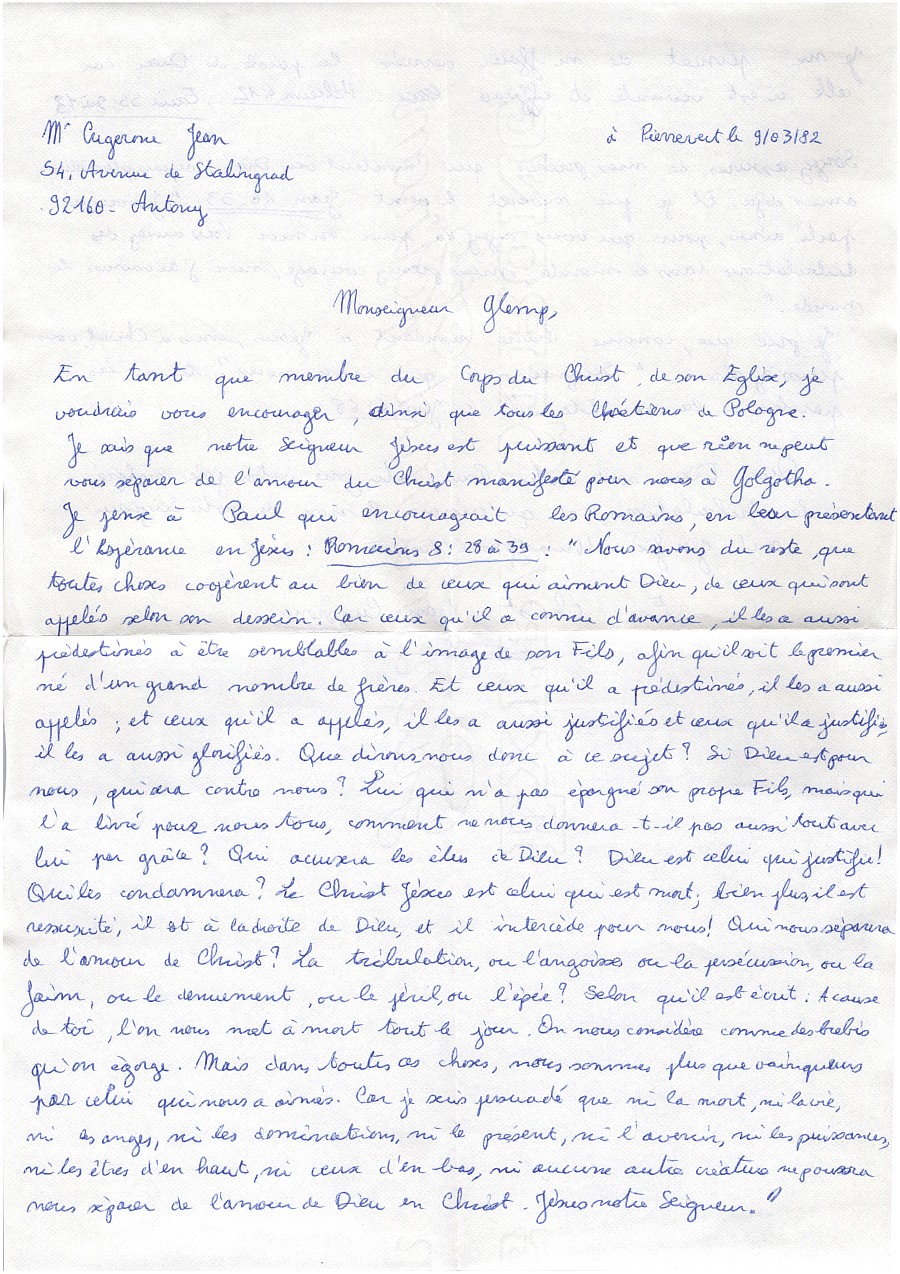 Mr Cugerone Jean
à Pierrevert le 9/03/82
54, Avenue de Stalingrad
92160 - Antony
Monseigneur Glemp,
En tant que membre du Corps du Christ, de son Eglise, je
voudrais vous encourager, ainsi que tous les Chrétiens de Pologne.
Je sais que notre Seigneur Jésus est puissant et que rien ne peut
vous séparer de l'amour du Christ manifesté pour nous à Golgotha.
Je pense à Paul qui encourageait les Romains, en leur présentant
l'Espérance en Jésus : Romains 8 : 28 à 39 : "Nous savons du reste, que
toutes choses coopèrent au bien de ceux qui aiment Dieu, de ceux qui sont
appelés selon son dessein. Car ceux qu'il a connu d'avance, il les a aussi
prédestinés à être semblables à l'image de son Fils, afin qu'il soit le premier
né d'un grand nombre de frères. Et ceux qu'il a prédestinés, il les a aussi
appelés ; et ceux qu'il a appelés, il les a aussi justifiés et ceux qu'il a justifiés,
il les a aussi glorifiés. Que dirons nous donc à ce sujet ? Si Dieu est pour
nous, qui sera contre nous ? Lui qui n'a pas épargné son propre Fils, mais qui
l'a livré pour nous tous, comment ne nous donnera-t-il pas aussi tout avec
lui par grâce ? Qui accusera les élus de Dieu ? Dieu est celui qui justifie !
Qui les condamnera ? Le Christ Jésus est celui qui est mort ; bien plus, il est
ressuscité, il est à la droite de Dieu, et il intercède pour nous ! Qui nous séparera
de l'amour de Christ ? La tribulation, ou l'angoisse ou la persécussion, ou la
faim, ou le denuement, ou le péril, ou l'épée ? Selon qu'il est écrit : A cause
de toi, l'on nous met à mort tout le jour. On nous considère comme des brebis
qu'on égorge. Mais dans toutes ces choses, nous sommes plus que vainqueurs
par celui qui nous a aimés. Car je suis persuadé que ni la mort, ni la vie,
ni les anges, ni les dominations, ni le présent, ni l'avenir, ni les puissances,
ni les êtres d'en haut, ni ceux d'en bas, ni aucune autre créature ne pourra
nous séparer de l'amour de Dieu en Christ. Jésus notre Seigneur."